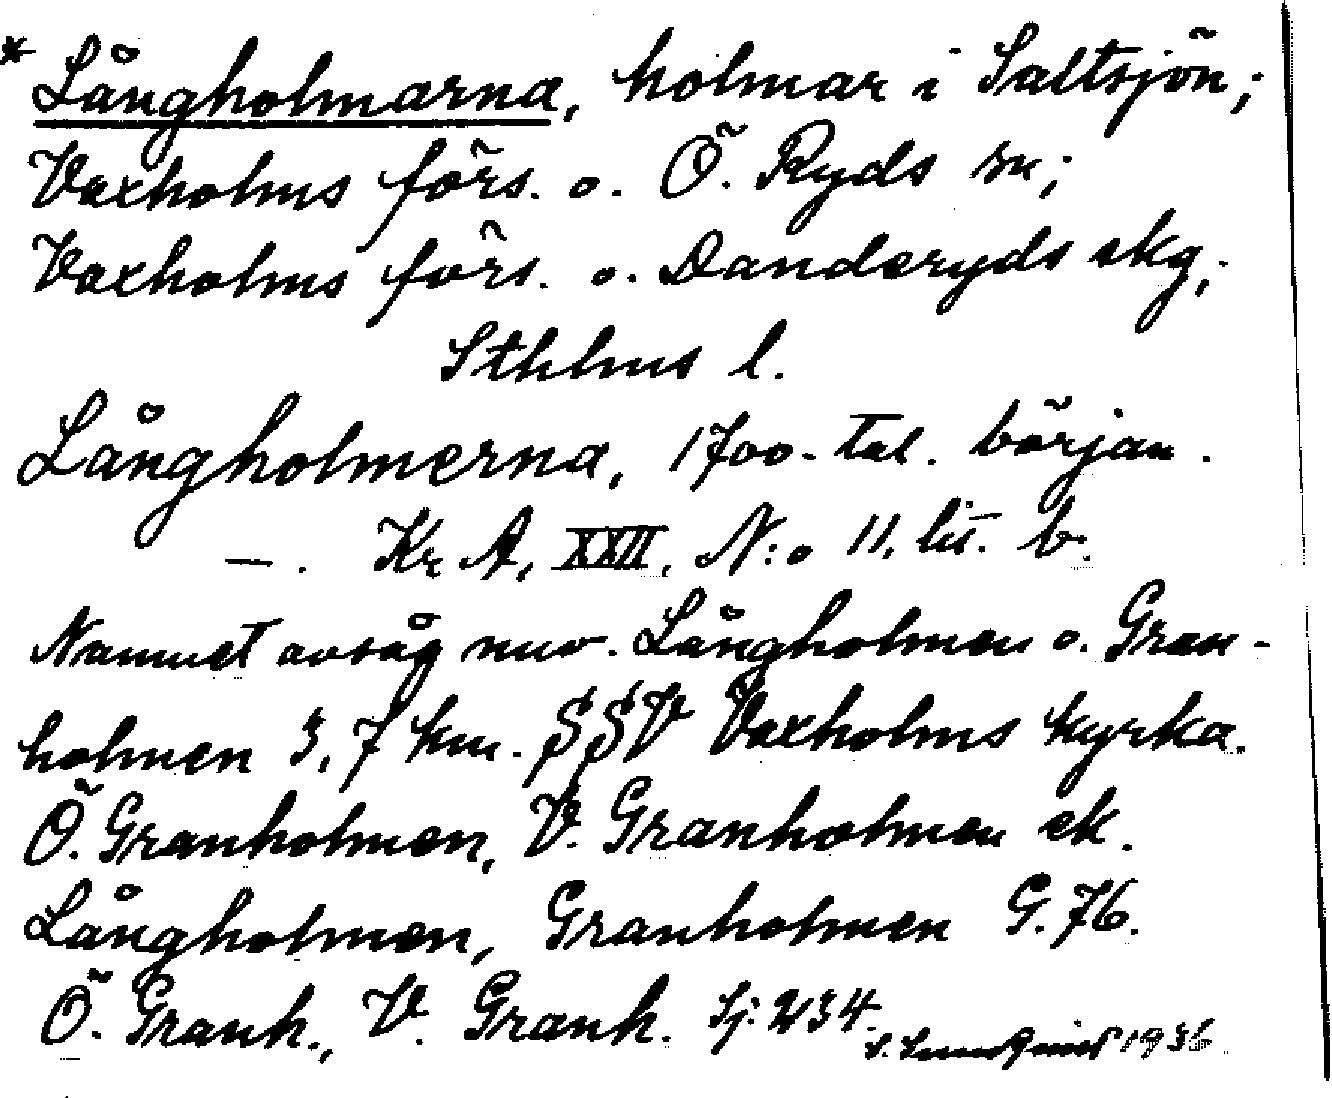 * Långholmarna, holmar i Saltsjön;
Vaxholms förs. o. Ö. Ryds sn;
Vaxholms förs. o. Danderyds skg,
Sthlms l.
Långholmerna, 1700-tal. början.
—. Kr A, XXII, N:o 11, lit. b.
Namnet avsåg nuv. Långholmen o. Gran-
holmen 3,7 km. SSV Vaxholms kyrka.
Ö. Granholmen, V. Granholmen ek.
Långholmen, Granholmen G.76.
Ö. Granh., V. Granh. Sj: 234.
1936